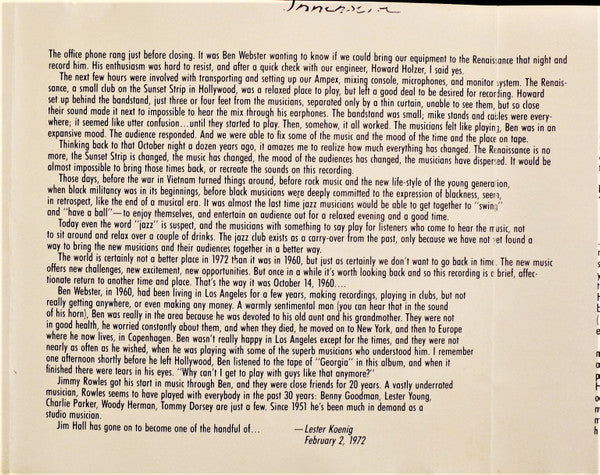 The office phone rang just before closing. It was Ben Webster wanting to know if we could bring our equipment to the Renaissance that night and
record him. His enthusiasm was hard to resist, and after a quick check with our engineer, Howard Holzer, I said yes.
The next few hours were involved with transporting and setting up our Ampex, mixing console, microphones, and monitor system. The Renais-
sance, a small club on the Sunset Strip in Hollywood, was a relaxed place to play, but left a good deal to be desired for recording. Howard
set up behind the bandstand, just three or four feet from the musicians, separated only by a thin curtain, unable to see them, but so close
their sound made it next to impossible to hear the mix through his earphones. The bandstand was small; mike stands and cables were every-
where; it seemed like utter confusion... until they started to play. Then, somehow, it all worked. The musicians felt like playing, Ben was in an
expansive mood. The audience responded. And we were able to fix some of the music and the mood of the time and the place on tape.
Thinking back to that October night a dozen years ago, it amazes me to realize how much everything has changed. The Renaissance is no
more, the Sunset Strip is changed, the music has changed, the mood of the audiences has changed, the musicians have dispersed. It would be
almost impossible to bring those times back, or recreate the sounds on this recording.
Those days, before the war in Vietnam turned things around, before rock music and the new life-style of the young generation,
when black militancy was in its beginnings, before black musicians were deeply committed to the expression of blackness, seem,
in retrospect, like the end of a musical era. It was almost the last time jazz musicians would be able to get together to "swing"
and "have a ball"—to enjoy themselves, and entertain an audience out for a relaxed evening and a good time.
Today even the word "jazz" is suspect, and the musicians with something to say play for listeners who come to hear the music, not
to sit around and relax over a couple of drinks. The jazz club exists as a carry-over from the past, only because we have not yet found a
way to bring the new musicians and their audiences together in a better way.
The world is certainly not a better place in 1972 than it was in 1960, but just as certainly we don't want to go back in time. The new music
offers new challenges, new excitement, new opportunities. But once in a while it's worth looking back and so this recording is a brief, affec-
tionate return to another time and place. That's the way it was October 14, 1960....
Ben Webster, in 1960, had been living in Los Angeles for a few years, making recordings, playing in clubs, but not
really getting anywhere, or even making any money. A warmly sentimental man (you can hear that in the sound
of his horn), Ben was really in the area because he was devoted to his old aunt and his grandmother. They were not
in good health, he worried constantly about them, and when they died, he moved on to New York, and then to Europe
where he now lives, in Copenhagen. Ben wasn't really happy in Los Angeles except for the times, and they were not
nearly as often as he wished, when he was playing with some of the superb musicians who understood him. I remember
one afternoon shortly before he left Hollywood, Ben listened to the tape of "Georgia" in this album, and when it
finished there were tears in his eyes. "Why can't I get to play with guys like that anymore?"
Jimmy Rowles got his start in music through Ben, and they were close friends for 20 years. A vastly underrated
musician, Rowles seems to have played with everybody in the past 30 years: Benny Goodman, Lester Young,
Charlie Parker, Woody Herman, Tommy Dorsey are just a few. Since 1951 he's been much in demand as a
studio musician.
Jim Hall has gone on to become one of the handful of...
—Lester Koenig
February 2, 1972